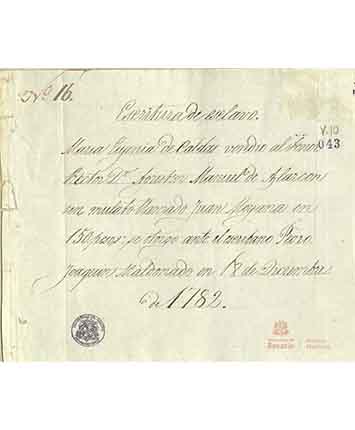 No. 16.
Escritura de esclavo.
V.10
043
Maria Eugenia de Caldas vende al Señor
Rector Dr. Agustin Manuel de Alarcon
un mulato llamado Juan en
150 pesos: se otorgó ante el escribano Pedro
Joaquin Maldonado en 18 de Diciembre
de 1782.
Rosario